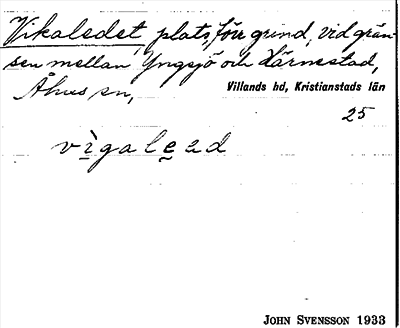 Vikaledet, plats, förr grind, vid grän-
sen mellan Yngsjö och Härnestad,
Åhus sn,
Villands hd, Kristianstads län
25
vìgaleḙd
JOHN SVENSSON 1933